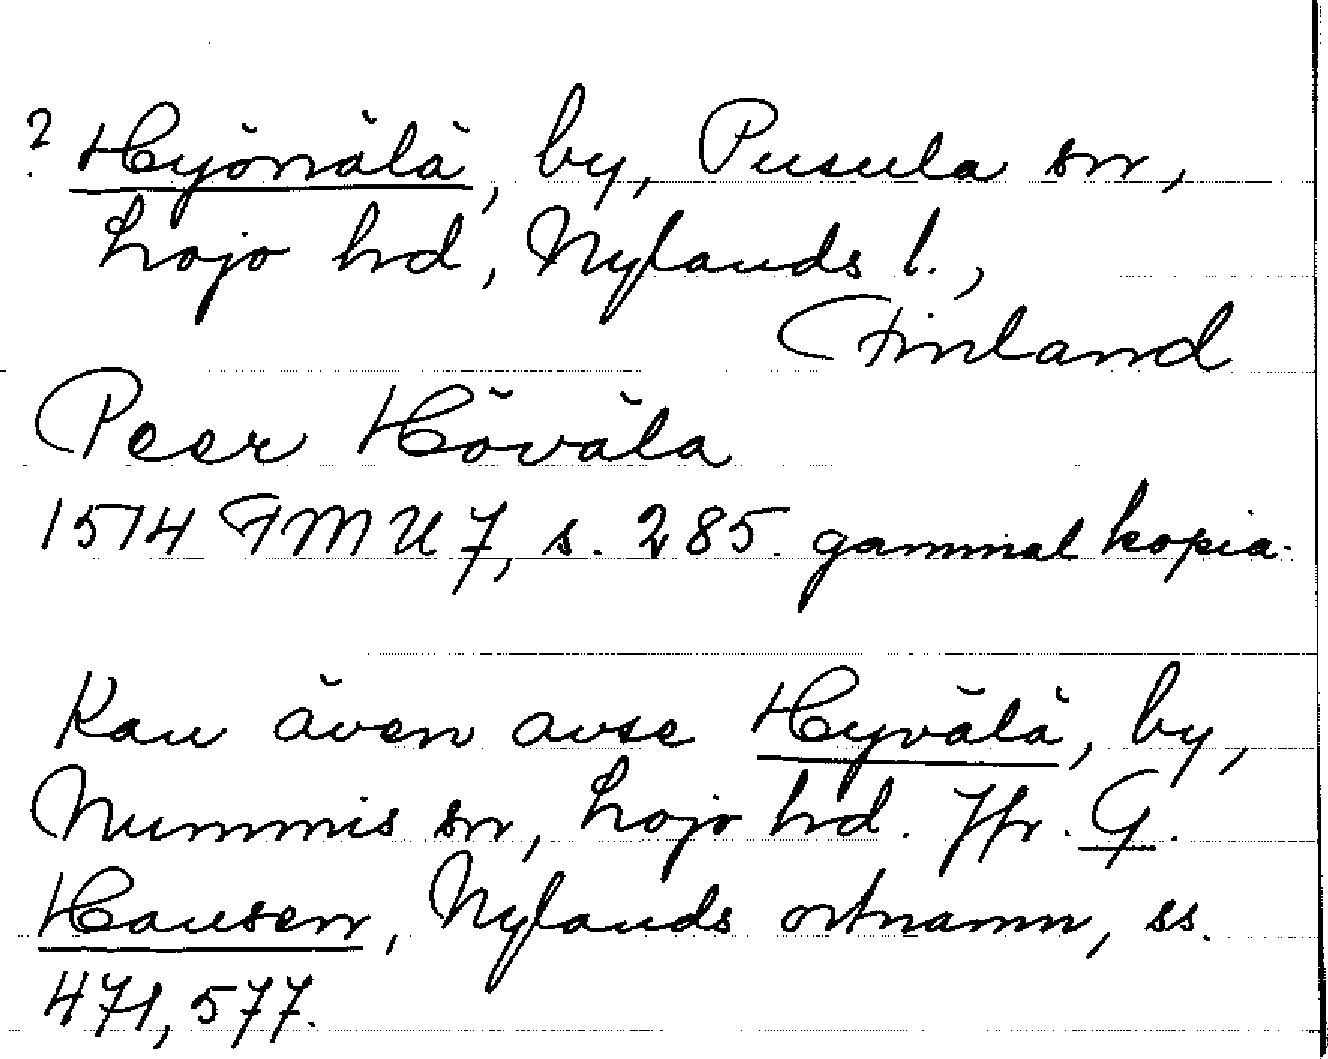 ? Hyönälä, by, Pusula sn,
Lojo hd, Nylands l.,
Finland
Peer Hövälä
1514 FMU 7, s. 285. gammal kopia.
Kan även avse Hyvälä, by,
Nummis sn, Lojo hd. Jfr. G.
Hausen, Nylands ortnamn, ss.
471, 577.